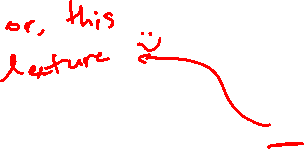 or, this
lecture